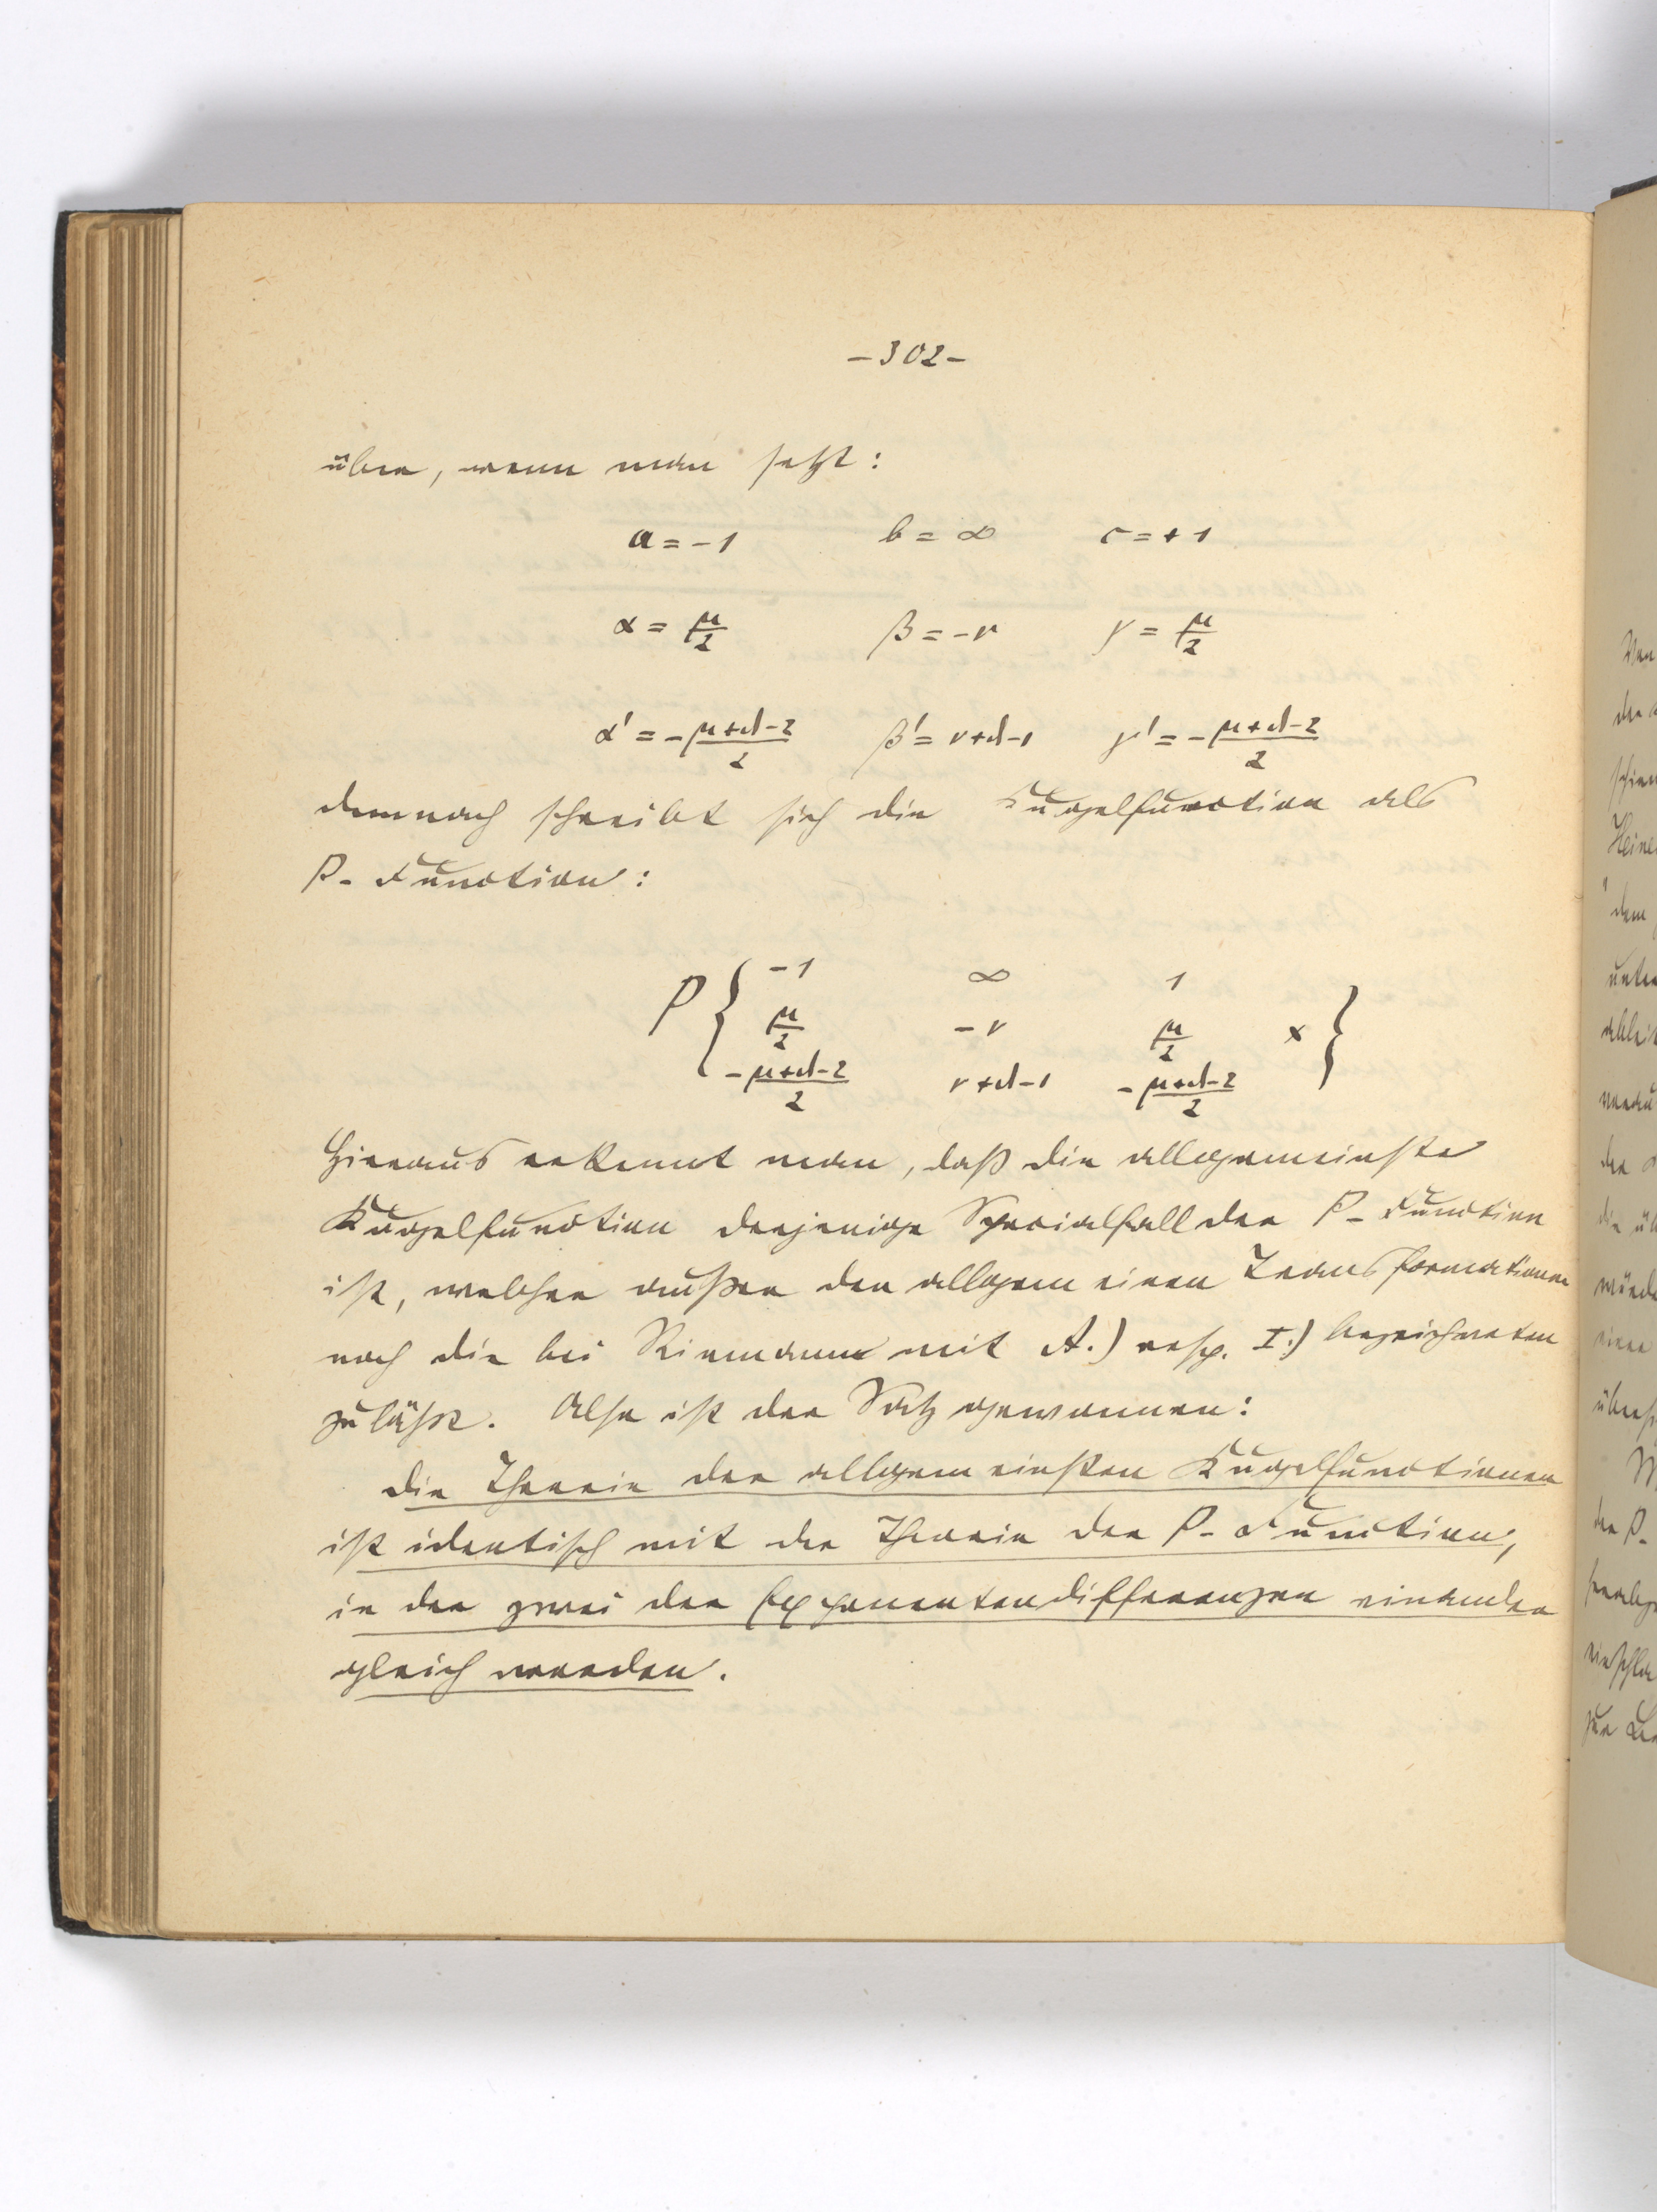 – 302 –
über, wenn man setzt:
a = – 1 b = ∞ c = + 1
α = μ/2 β = – ν γ = μ/2
α' = – (μ+d–2)/2 β' = ν+d–1 γ' = – (μ+d–2)/2
demnach schreibt sich die Kugelfunction als
P- Function:
P { –1 ∞ 1
μ/2 – ν μ/2 x }
– (μ+d–2)/2 ν+d–1 – (μ+d–2)/2
Hieraus erkennt man, daß die allgemeinste
Kugelfunction derjenige Specialfall der P- Function
ist, welcher außer den allgemeinen Transformationen
noch die bei Riemann mit A.) resp. I.) bezeichneten
zuläßt. Also ist der Satz gewonnen:
die Theorie der allgemeinsten Kugelfunctionen
ist identisch mit der Theorie der P- Function,
in der zwei der Exponentendifferenzen einander
gleich werden.